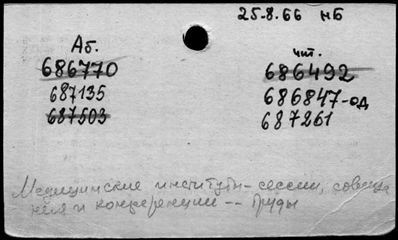 25-8.66 мб
Аб.
чит.
686770
686492
687135
686847-од
687503
687261
Медицинские институты-сессии, совеща
ния и конференции -- Труды